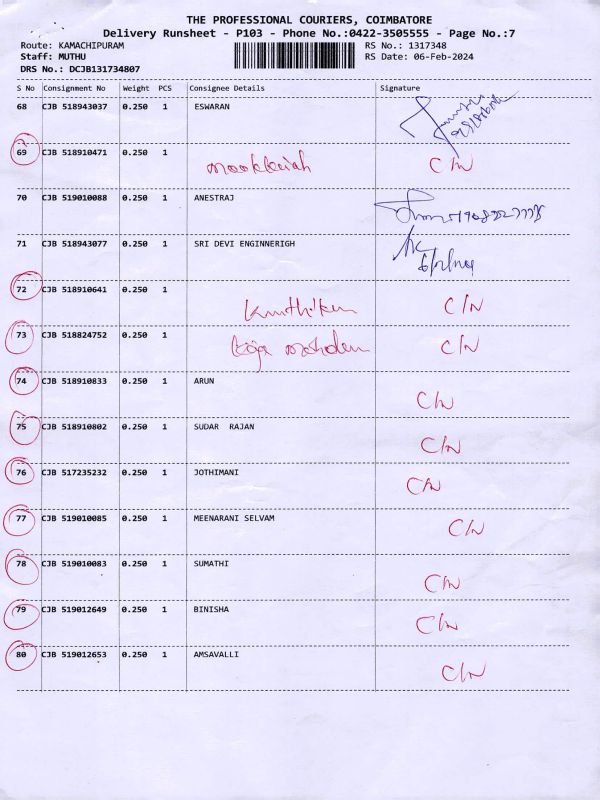 THE PROFESSIONAL COURIERS, COIMBATORE
Delivery Runsheet - P103 - Phone No.:0422-3505555 - Page No.:7
Route: KAMACHIPURAM RS No.: 1317348
Staff: MUTHU RS Date: 06-Feb-2024
DRS No.: DCJB131734807
S No Consignment No Weight PCS Consignee Details Signature
68 CJB 518943037 0.250 1 ESWARAN
69 CJB 518910471 0.250 1 C/N
70 CJB 519010088 0.250 1 ANESTRAJ
71 CJB 518943077 0.250 1 SRI DEVI ENGINNERIGH
72 CJB 518910641 0.250 1 C/N
73 CJB 518824752 0.250 1 C/N
74 CJB 518910833 0.250 1 ARUN C/N
75 CJB 518910802 0.250 1 SUDAR RAJAN C/N
76 CJB 517235232 0.250 1 JOTHIMANI C/N
77 CJB 519010085 0.250 1 MEENARANI SELVAM C/N
78 CJB 519010083 0.250 1 SUMATHI C/N
79 CJB 519012649 0.250 1 BINISHA C/N
80 CJB 519012653 0.250 1 AMSAVALLI C/N